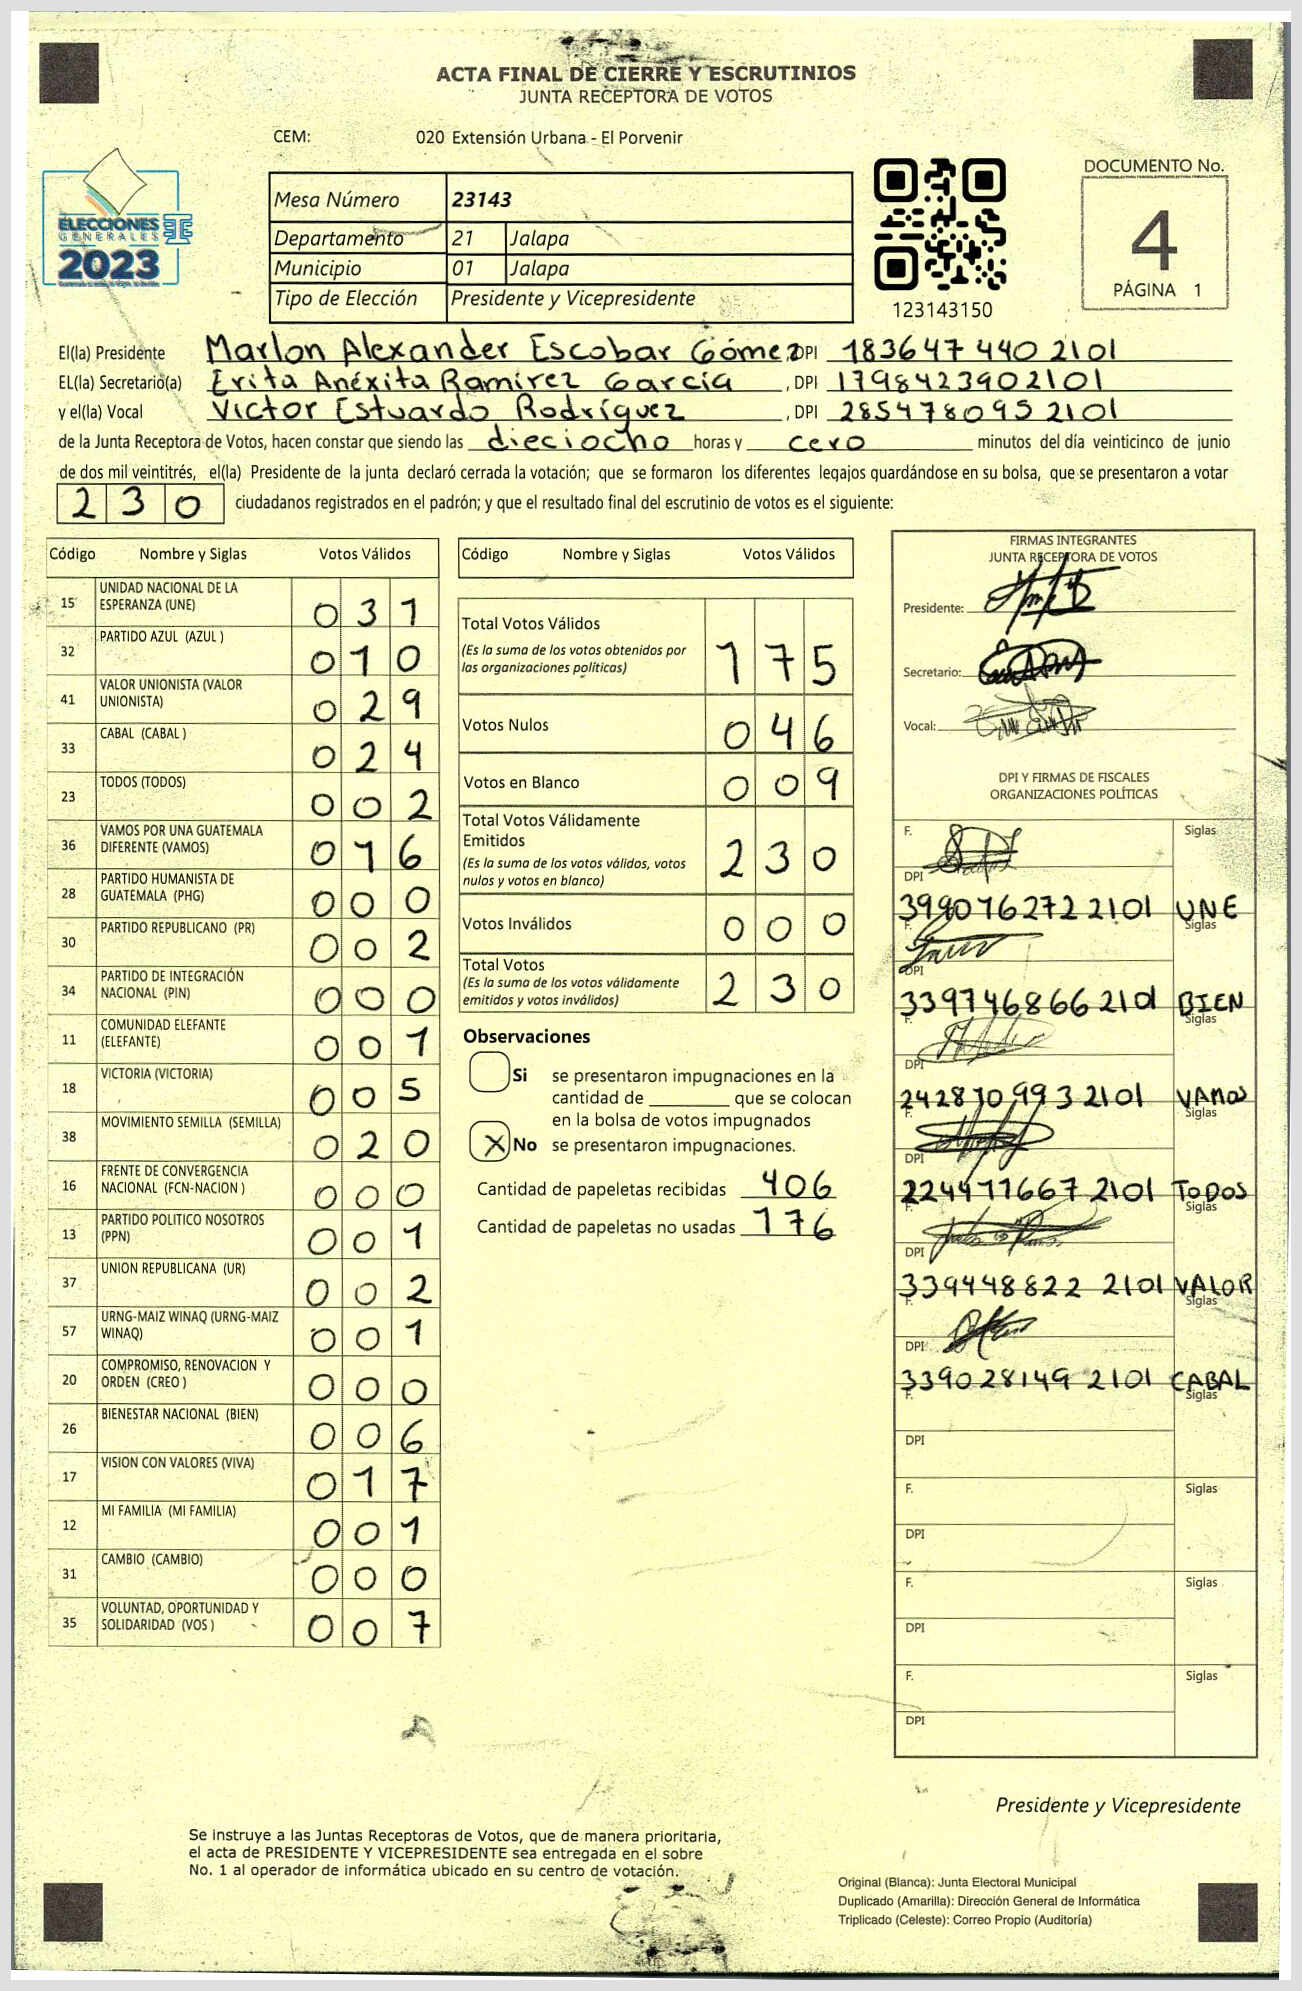 ACTA FINAL DE CIERRE Y ESCRUTINIOS
JUNTA RECEPTORA DE VOTOS
CEM: 020 Extensión Urbana - El Porvenir
ELECCIONES
GENERALES
2023
Mesa Número 23143
Departamento 21 Jalapa
Municipio 01 Jalapa
Tipo de Elección Presidente y Vicepresidente
123143150
DOCUMENTO No.
4
PÁGINA 1
El(la) Presidente Marlon Alexander Escobar Gómez DPI 183647440 2101
EL(la) Secretario(a) Erita Anéxita Ramírez García , DPI 1798423902101
y el(la) Vocal Victor Estuardo Rodríguez , DPI 285478095 2101
de la Junta Receptora de Votos, hacen constar que siendo las dieciocho horas y cero minutos del día veinticinco de junio
de dos mil veintitrés, el(la) Presidente de la junta declaró cerrada la votación; que se formaron los diferentes legajos quardándose en su bolsa, que se presentaron a votar
230 ciudadanos registrados en el padrón; y que el resultado final del escrutinio de votos es el siguiente:
Código Nombre y Siglas Votos Válidos
15 UNIDAD NACIONAL DE LA
ESPERANZA (UNE) 031
32 PARTIDO AZUL (AZUL ) 010
41 VALOR UNIONISTA (VALOR
UNIONISTA) 029
33 CABAL (CABAL ) 024
23 TODOS (TODOS) 002
36 VAMOS POR UNA GUATEMALA
DIFERENTE (VAMOS) 016
28 PARTIDO HUMANISTA DE
GUATEMALA (PHG) 000
30 PARTIDO REPUBLICANO (PR) 002
34 PARTIDO DE INTEGRACIÓN
NACIONAL (PIN) 000
11 COMUNIDAD ELEFANTE
(ELEFANTE) 001
18 VICTORIA (VICTORIA) 005
38 MOVIMIENTO SEMILLA (SEMILLA) 020
16 FRENTE DE CONVERGENCIA
NACIONAL (FCN-NACION ) 000
13 PARTIDO POLITICO NOSOTROS
(PPN) 001
37 UNION REPUBLICANA (UR) 002
57 URNG-MAIZ WINAQ (URNG-MAIZ
WINAQ) 001
20 COMPROMISO, RENOVACION Y
ORDEN (CREO ) 000
26 BIENESTAR NACIONAL (BIEN) 006
17 VISION CON VALORES (VIVA) 017
12 MI FAMILIA (MI FAMILIA) 001
31 CAMBIO (CAMBIO) 000
35 VOLUNTAD, OPORTUNIDAD Y
SOLIDARIDAD (VOS ) 007
Código Nombre y Siglas Votos Válidos
Total Votos Válidos
(Es la suma de los votos obtenidos por
las organizaciones políticas) 175
Votos Nulos 046
Votos en Blanco 009
Total Votos Válidamente
Emitidos
(Es la suma de los votos válidos, votos
nulos y votos en blanco) 230
Votos Inválidos 000
Total Votos
(Es la suma de los votos válidamente
emitidos y votos inválidos) 230
Observaciones
Si se presentaron impugnaciones en la
cantidad de ________ que se colocan
en la bolsa de votos impugnados
X No se presentaron impugnaciones.
Cantidad de papeletas recibidas 406
Cantidad de papeletas no usadas 176
FIRMAS INTEGRANTES
JUNTA RECEPTORA DE VOTOS
Presidente:
Secretario:
Vocal:
DPI Y FIRMAS DE FISCALES
ORGANIZACIONES POLÍTICAS
F. Siglas
DPI
399076272 2101 UNE
F. Siglas
DPI
339746866 2101 BIEN
F. Siglas
DPI
242870993 2101 VAMOS
F. Siglas
DPI
224477667 2101 TODOS
F. Siglas
DPI
339448822 2101 VALOR
F. Siglas
DPI
339028149 2101 CABAL
F. Siglas
DPI
F. Siglas
DPI
F. Siglas
DPI
F. Siglas
DPI
Presidente y Vicepresidente
Se instruye a las Juntas Receptoras de Votos, que de manera prioritaria,
el acta de PRESIDENTE Y VICEPRESIDENTE sea entregada en el sobre
No. 1 al operador de informática ubicado en su centro de votación.
Original (Blanca): Junta Electoral Municipal
Duplicado (Amarilla): Dirección General de Informática
Triplicado (Celeste): Correo Propio (Auditoría)